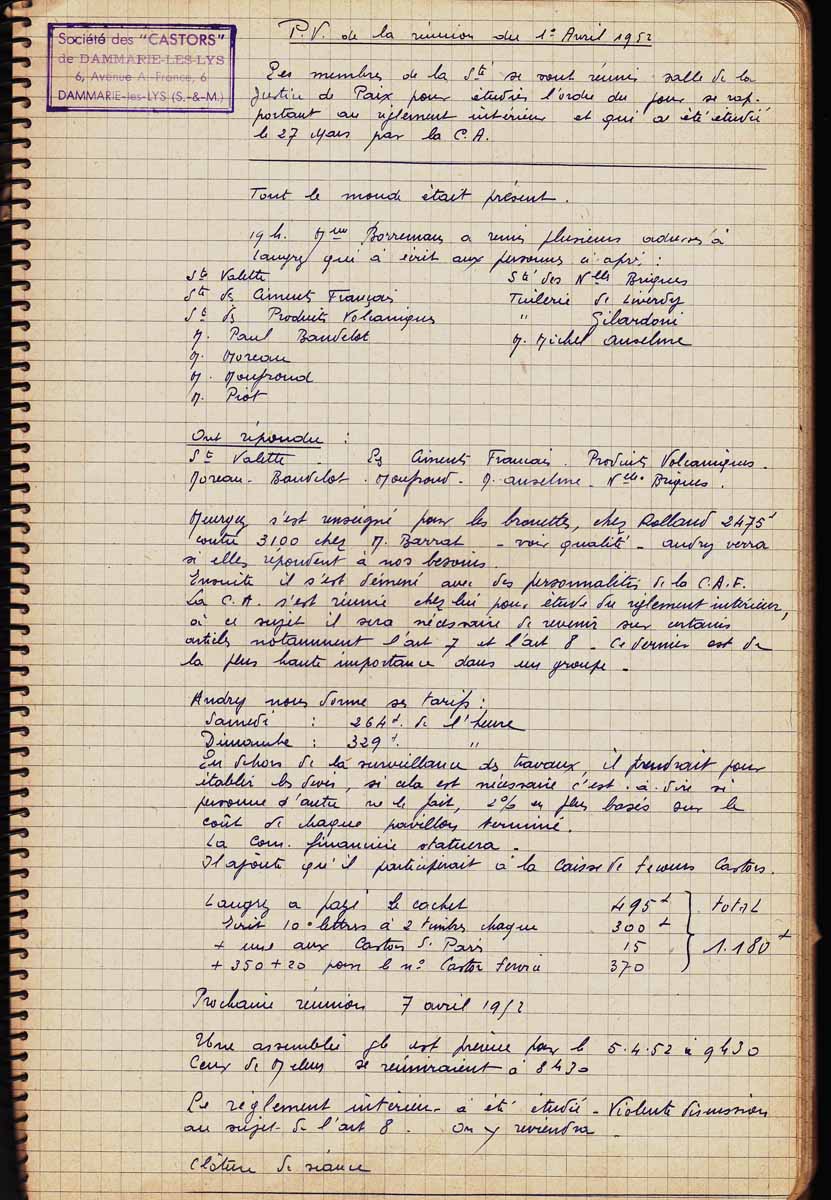 Société des "CASTORS"
de DAMMARIE-LES-LYS
6, Avenue A.-France, 6
DAMMARIE-les-LYS (S.-&-M.)
P.V. de la réunion du 1º Avril 1952
Les membres de la Sté se sont réunis salle de la
Justice de Paix pour étudier l'ordre du jour se rap-
portant au règlement intérieur et qui a été étudié
le 27 Mars par la C.A.
Tout le monde était présent.
19 h. Mme Borremans a remis plusieurs adresses à
Laugry qui à écrit aux personnes ci après :
Sté Valette
Sté des Ciments Français
Sté des Produits Volcaniques
M. Paul Baudelot
M. Moreau
M. Moufroud
M. Piot
Sté des Nlles Briques
Tuilerie de Liverdy
" Gilardoni
M. Michel Anselme
Ont répondu :
Sté Valette - Les Ciments Français. Produits Volcaniques.
Moreau - Baudelot. Moufroud - M. Anselme - Nlles Briques.
s'est renseigné pour les brouettes, chez Rolland 2475f
contre 3100 chez M. Barrat - voir qualité - Andry verra
si elles répondent à nos besoins.
Ensuite il s'est démené avec des personnalités de la C.A.F.
La C.A. s'est réunie chez lui pour étude du règlement intérieur,
à ce sujet il sera nécessaire de revenir sur certains
articles notamment l'art 7 et l'art 8 - Ce dernier est de
la plus haute importance dans un groupe.
Andry nous donne ses tarifs :
Samedi : 264f. de l'heure
Dimanche : 329f. "
En dehors de la surveillance des travaux, il prendrait pour
établir les devis, si cela est nécessaire c'est. à. dire si
personne d'autre ne le fait, 2% en plus basés sur le
coût de chaque pavillon terminé.
La Com. financière statuera.
Il ajoute qu'il participerait à la Caisse de Secours Castors.
Laugry a payé le cachet 495f
Ecrit 10 lettres à 2 timbres chaque 300f
+ une aux Castors de Paris 15
+ 350 + 20 pour le nº Castor Service 370
TOTAL
1.180f
Prochaine réunion 7 avril 1952
Une assemblée gle est prévue pour le 5.4.52 à 9h30
Ceux de Melun se réuniraient à 8h30
Le règlement intérieur à été étudié - Violente discussion
au sujet de l'art 8. On y reviendra.
Clôture de séance